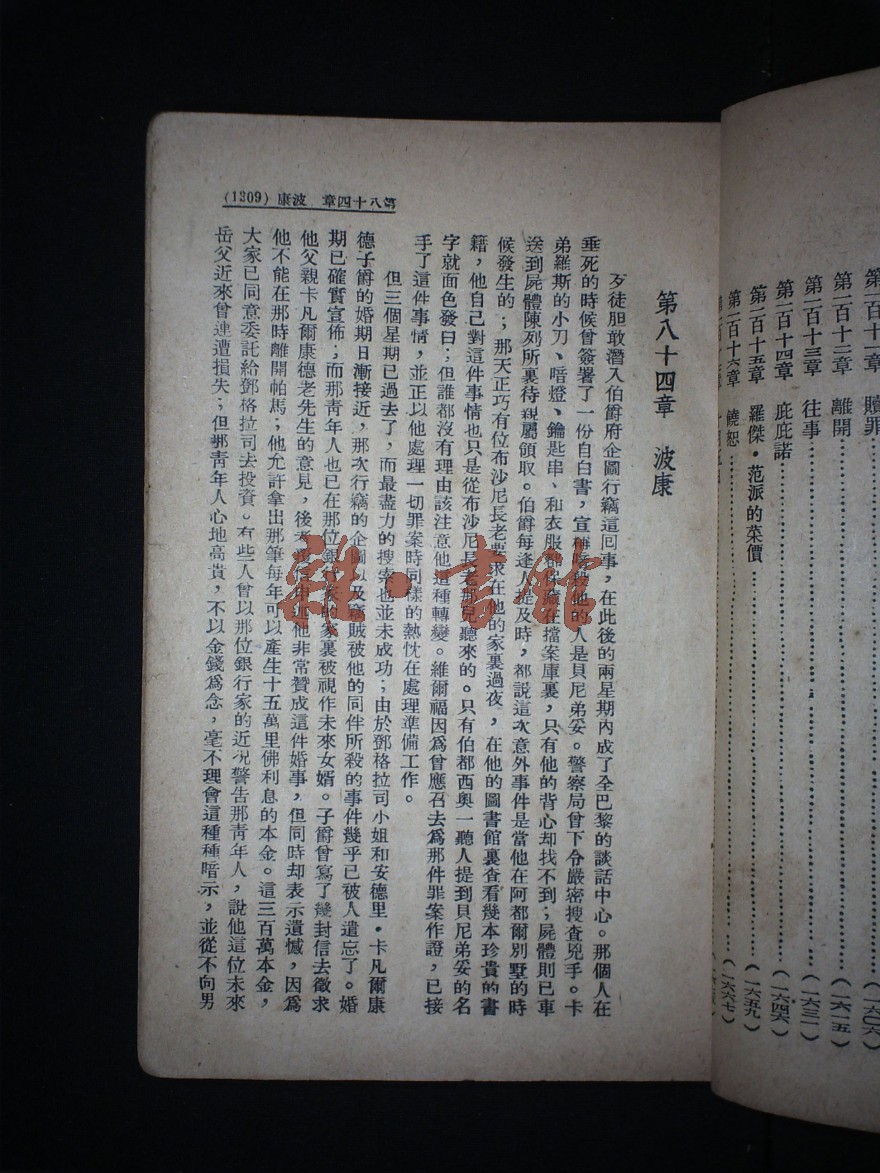 第一百十一章 贖罪……………………(一六〇六)
第一百十二章 離開……………………(一六一五)
第一百十三章 往事……………………(一六三一)
第一百十四章 庇庇諾……………………(一六四六)
第一百十五章 羅傑・范派的菜價……………………(一六五九)
第一百十六章 饒恕……………………(一六六七)
第八十四章 波康 (1309)
第八十四章 波康
歹徒胆敢潛入伯爵府企圖行竊這囘事，在此後的兩星期內成了全巴黎的談話中心。那個人在
垂死的時候曾簽署了一份自白書，宣稱暗殺他的人是貝尼弟妥。警察局曾下令嚴密搜查兇手。卡
弟羅斯的小刀、暗燈、鑰匙串、和衣服都保藏在擋案庫裏，只有他的背心却找不到；屍體則已車
送到屍體陳列所裏待親屬領取。伯爵每逢人提及時，都說這次意外事件是當他在阿都爾別墅的時
候發生的；那天正巧有位布沙尼長老要求在他的家裏過夜，在他的圖書館裏查看幾本珍貴的書
籍，他自己對這件事情也只是從布沙尼長老那兒聽來的。只有伯都西奧一聽人提到貝尼弟妥的名
字就面色發白；但誰都沒有理由該注意他這種轉變。維爾福因爲曾應召去爲那件罪案作證，已接
手了這件事情，並正以他處理一切罪案時同樣的熱忱在處理準備工作。
但三個星期已過去了，而最盡力的搜索也並未成功；由於鄧格拉司小姐和安德里・卡凡爾康
德子爵的婚期日漸接近，那次行竊的企圖以及竊賊被他的同伴所殺的事件幾乎已被人遺忘了。婚
期已確實宣佈；而那靑年人也已在那位銀行家的家裏被視作未來女婿。子爵曾寫了幾封信去徵求
他父親卡凡爾康德老先生的意見，後者覆信申述他非常贊成這件婚事，但同時却表示遺憾，因爲
他不能在那時離開帕馬；他允許拿出那筆每年可以產生十五萬里佛利息的本金。這三百萬本金，
大家已同意委託給鄧格拉司去投資。有些人曾以那位銀行家的近況警告那靑年人，說他這位未來
岳父近來曾連遭損失；但那靑年人心地高貴，不以金錢爲念，毫不理會這種種暗示，並從不向男
雜・書館